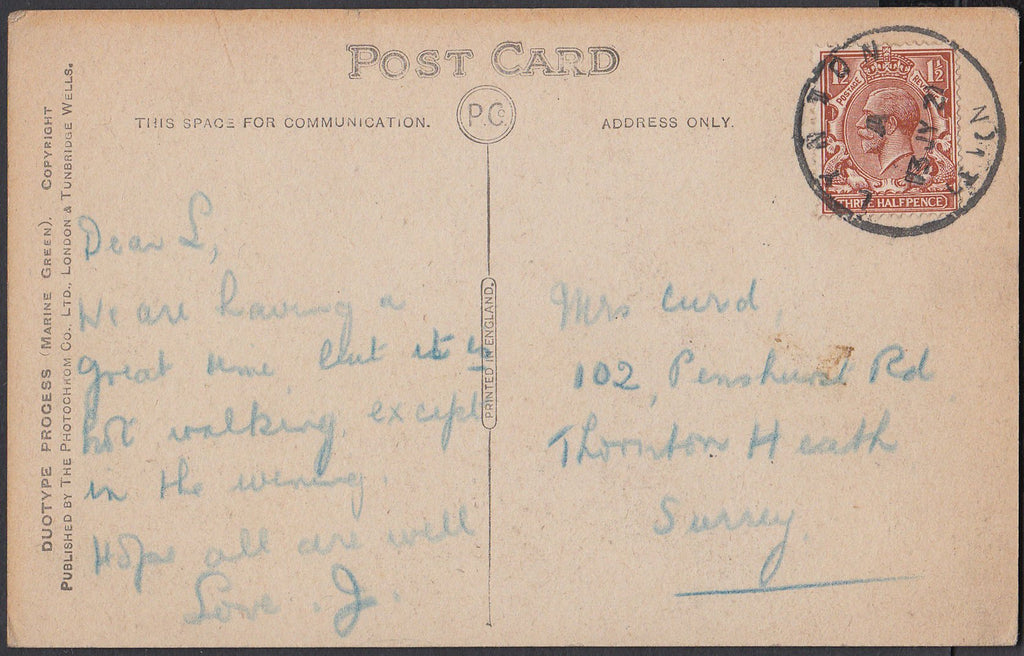 POST CARD
P.Co
THIS SPACE FOR COMMUNICATION.
ADDRESS ONLY.
DUOTYPE PROCESS (MARINE GREEN). COPYRIGHT
PUBLISHED BY THE PHOTOCHROM CO., LTD., LONDON & TUNBRIDGE WELLS.
PRINTED IN ENGLAND.
Dear L,
We are having a
great time but it is
hot walking except
in the evening.
Hope all are well
Love. J.
Mrs Curd,
102, Penshurst Rd
Thornton Heath
Surrey.
1½ 1½
POSTAGE REVENUE
THREE HALFPENCE
LYNTON
13 JY 21